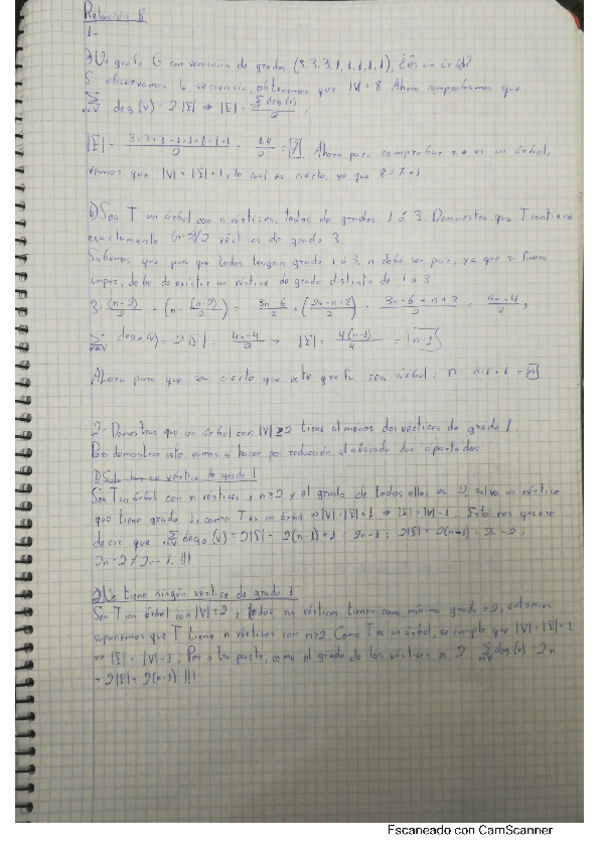 Relación 8
1-
a) Un grafo G con secuencia de grados (3,3,3,1,1,1,1,1), ¿es un árbol?
Si observamos la secuencia, obtenemos que |V| = 8. Ahora comprobamos que
∑ deg(v) = 2|E| ⇒ |E| = ∑ deg(v) / 2
|E| = 3+3+3+1+1+1+1+1 / 2 = 14 / 2 = 7. Ahora para comprobar que es un árbol,
vemos que |V| = |E|+1, lo cual es cierto, ya que 8 = 7+1.
b) Sea T un árbol con n vértices, todos de grados 1 ó 3. Demuestra que T contiene
exactamente (n-2)/2 vértices de grado 3.
Sabemos que para que todos tengan grado 1 ó 3, n debe ser par, ya que si fuera
impar, debe de existir un vértice de grado distinto de 1 ó 3
3· (n-2)/2 + (n - (n-2)/2) = 3n-6/2 + (2n-n+2/2) = 3n-6+n+2/2 = 4n-4/2 ,
∑ deg(v) = 2|E| = 4n-4/2 → |E| = 4(n-1)/4 = n-1
Ahora para que sea cierto que este grafo sea árbol: n = n-1+1 = n
2- Demostrar que un árbol con |V| ≥ 2 tiene al menos dos vértices de grado 1.
Para demostrar esto vamos a hacer por reducción al absurdo dos apartados
1) Solo un vértice de grado 1
Sea T un árbol con n vértices, n>2 y el grado de todos ellos es 2, salvo un vértice
que tiene grado 1, como T es un árbol ⇒ |V| = |E|+1 ⇒ |E| = |V|-1. Esto nos quiere
decir que ∑ deg(v) = 2|E| = 2(n-1)+1 = 2n-1 ; 2|E| = 2(n-1) = 2n-2 ;
2n-2 ≠ 2n-1. !!!
2) No tiene ningún vértice de grado 1
Sea T un árbol con |V| ≥ 2 y todos sus vértices tienen como mínimo grado ≥2, entonces
suponemos que T tiene n vértices con n>2. Como T es un árbol, se cumple que |V| = |E|+1
⇒ |E| = |V|-1. Por otra parte, como el grado de los vértices es 2 ∑ deg(v) = 2n
= 2|E| = 2(n-1) !!!
Escaneado con CamScanner